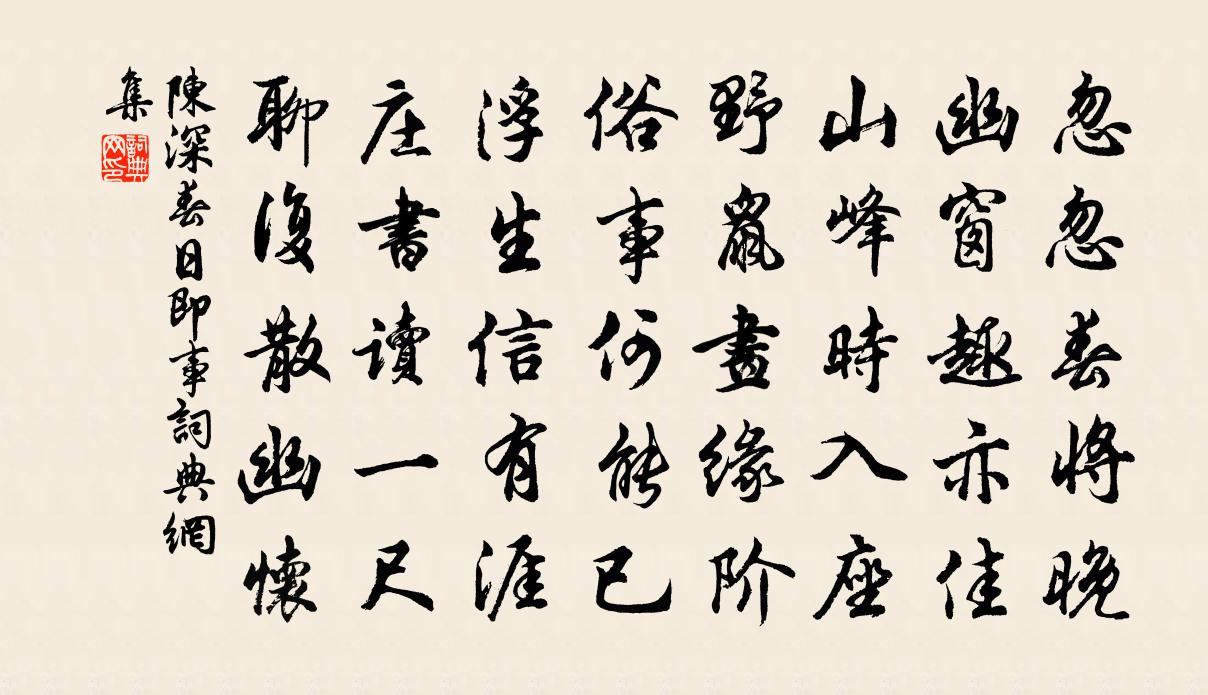 忽忽春將晚
幽窗趣亦佳
山峰時入座
野鼠晝緣阶
俗事何能已
浮生信有涯
庄書讀一尺
聊復散幽懷
陳深春日即事詞典網
集
詞典
网印